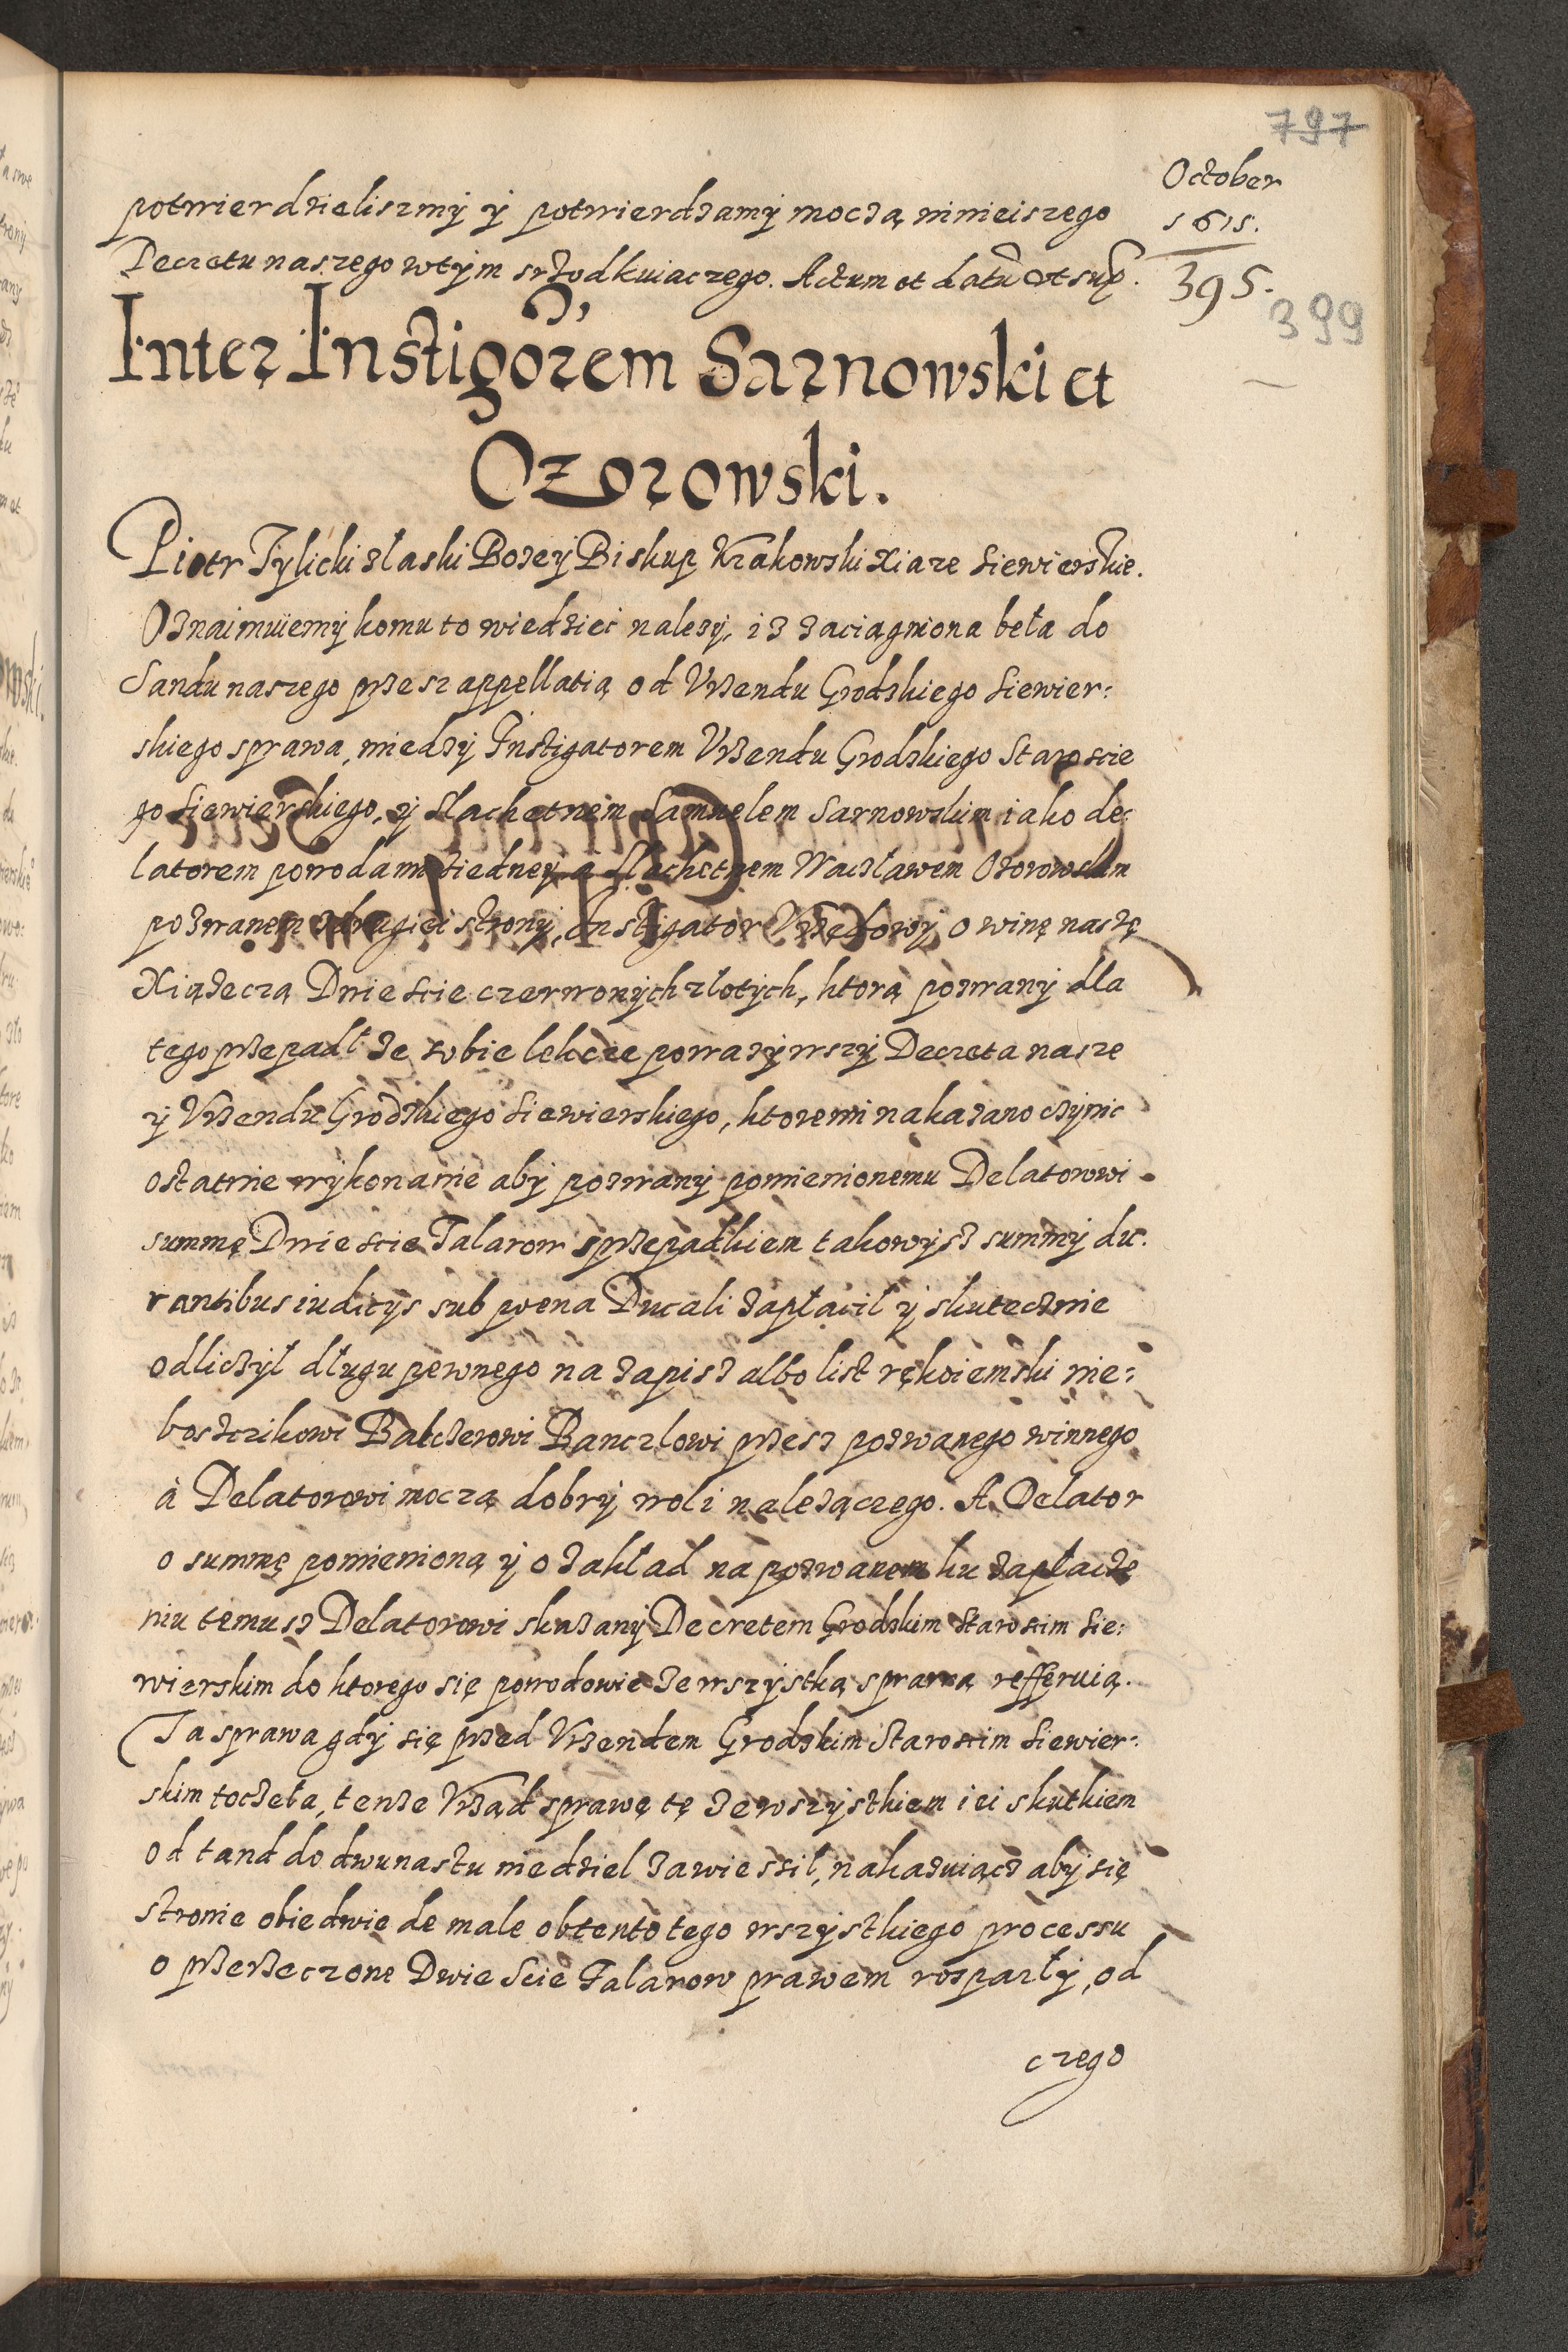 797
October
1615.
395.
399
potwierdzieliszmÿ ÿ potwierdzamÿ moczą ninieiszego
Decretu naszego wtÿm srzodkuiaczego. Actum et datũ ut sup.
Inter Instigõrem Sarnowski et
Ozorowski.
Piotr Tÿlicki złaski Bozeÿ Biskup Krakowski Xiaze Siewierskie.
Oznaimuiemÿ komu to wiedziec nalezÿ, iz zaciągniona beła do
Sandu naszego przesz appellatią od Vrzendu Grodzkiego Siewier:
skiego sprawa, miedzÿ Instigatorem Vrzendu Grodzkiego Staroscie
go Siewierskiego, ÿ Slachetnem Samuelem Sarnowskim iako de:
latorem powodami ziedneÿ, a Slachetnem Wacławem Ozorowskim
pozwanem zdrugiei stronÿ, Instigator Vrzędowÿ o winę naszę
Xiązeczą Dwiescie czerwonÿch złotÿch, ktorą pozwanÿ dla
tego przepadł ze sobie lekcze powazÿwszÿ Decreta nasze
ÿ Vrzendu Grodzkiego Siewierskiego, ktoremi nakazano czÿnic
ostatnie wÿkonanie abÿ pozwanÿ pomienionemu Delatorowi
summę Dwiescie Talarow sprzepadkiem takowÿsz summÿ du:
rantibus iudicÿs sub poena Ducali zapłacił ÿ skutecznie
odliczÿł długu pewnego na zapisz albo list rękoiemski nie:
boszczikowi Balczerowi Banczlowi przesz pozwanego winnego
à Delatorowi moczą dobrÿ woli nalezączego. A Delator
o summę pomienioną ÿ o zakład na pozwanem ku zapłacze
niu temusz Delatorowi skazanÿ Decretem Grodzkim Staroscim Sie:
wierskim do ktorego się powodowie ze wszÿstką sprawą refferuią.
Ta sprawa gdÿ się przed Vrzendem Grodzkim Staroscim Siewier:
skim toczeła, tenze Vrząd sprawę tę ze wszÿstkiem iei skutkiem
od tand do dwunastu niedziel zawiessił, nakazuiącz abÿ się
stronie obiedwie de male obtento tego wszÿstkiego processu
o przerzeczone Dwie Scie Talarow prawem rosparłÿ, od
czego